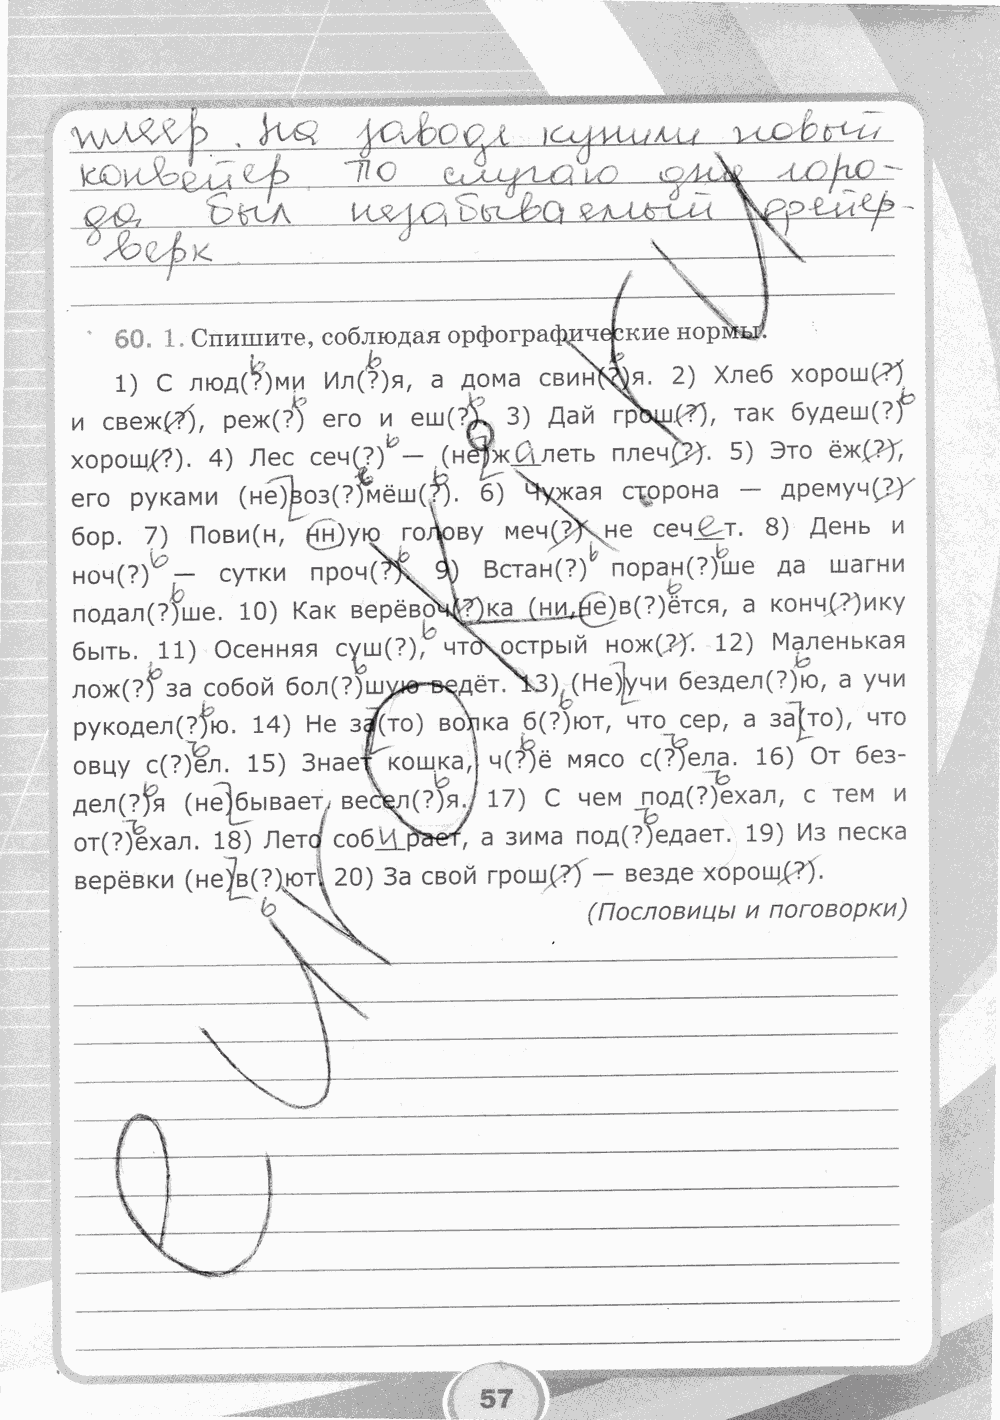 плеер. На заводе купили новый
конвейер. По случаю дня горо-
да был незабываемый фейер-
верк
60. 1. Спишите, соблюдая орфографические нормы.
1) С люд(?)ьми Ил(?)ья, а дома свин(?)ья. 2) Хлеб хорош(?)
и свеж(?), реж(?)ь его и еш(?)ь. 3) Дай грош(?), так будеш(?)ь
хорош(?). 4) Лес сеч(?)ь — (не)жалеть плеч(?). 5) Это ёж(?),
его руками (не)воз(?)ьмёш(?)ь. 6) Чужая сторона — дремуч(?)
бор. 7) Пови(н, нн)ую голову меч(?) не сечет. 8) День и
ноч(?)ь — сутки проч(?)ь. 9) Встан(?)ь поран(?)ьше да шагни
подал(?)ьше. 10) Как верёвоч(?)ка (ни,не)в(?)ьётся, а конч(?)ику
быть. 11) Осенняя суш(?)ь, что острый нож(?). 12) Маленькая
лож(?)ь за собой бол(?)ьшую ведёт. 13) (Не)учи бездел(?)ью, а учи
рукодел(?)ью. 14) Не за(то) волка б(?)ьют, что сер, а за(то), что
овцу с(?)ъел. 15) Знает кошка, ч(?)ьё мясо с(?)ъела. 16) От без-
дел(?)ья (не)бывает весел(?)ья. 17) С чем под(?)ъехал, с тем и
от(?)ъехал. 18) Лето собирает, а зима под(?)ъедает. 19) Из песка
верёвки (не)в(?)ьют. 20) За свой грош(?) — везде хорош(?).
(Пословицы и поговорки)
еуроки.ru
57